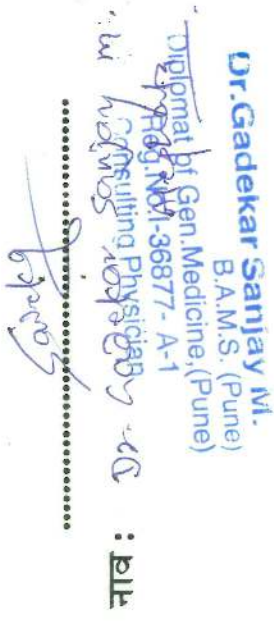 Dr.Gadekar Sanjay M.
B.A.M.S. (Pune)
Diplomat of Gen.Medicine,(Pune)
Reg.No.I-36877- A-1
Consulting Physician
नाव : Dr. Gadekar Sanjay M.